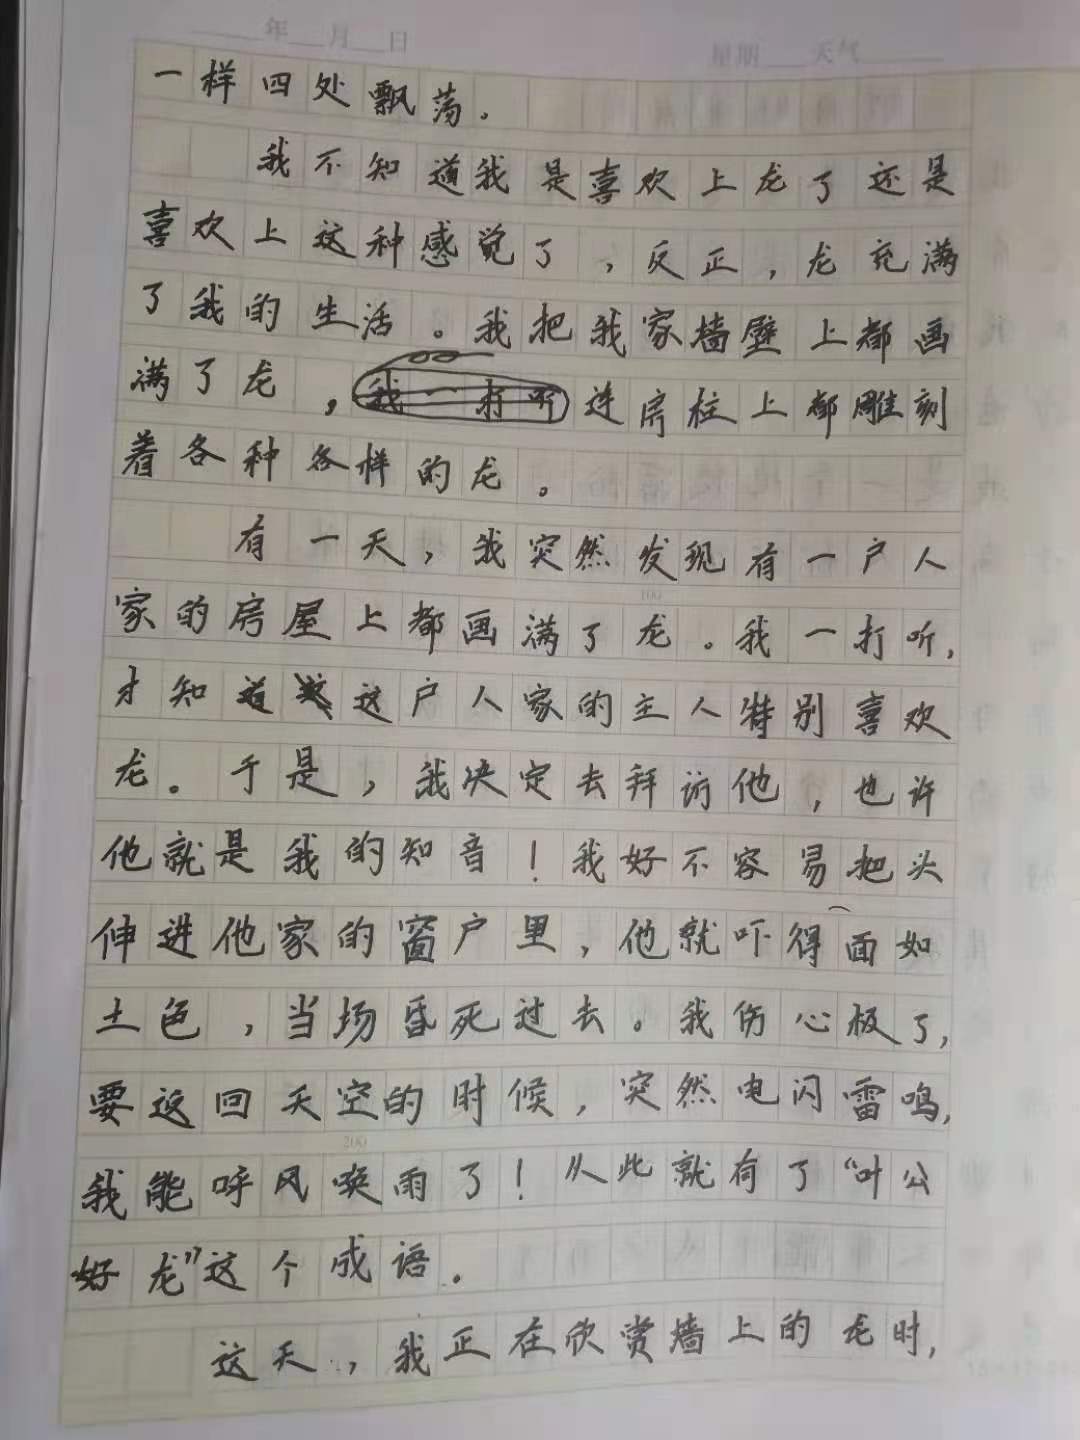 年 月 日
星期 天气
一样四处飘荡。
我不知道我是喜欢上龙了还是
喜欢上这种感觉了，反正，龙充满
了我的生活。我把我家墙壁上都画
满了龙，我一打听连房柱上都雕刻
着各种各样的龙。
有一天，我突然发现有一户人
100
家的房屋上都画满了龙。我一打听，
才知道这这户人家的主人特别喜欢
龙。于是，我决定去拜访他，也许
他就是我的知音！我好不容易把头
伸进他家的窗户里，他就吓得面如
土色，当场昏死过去。我伤心极了，
要返回天空的时候，突然电闪雷鸣，
200
我能呼风唤雨了！从此就有了“叶公
好龙”这个成语。
这天，我正在欣赏墙上的龙时，